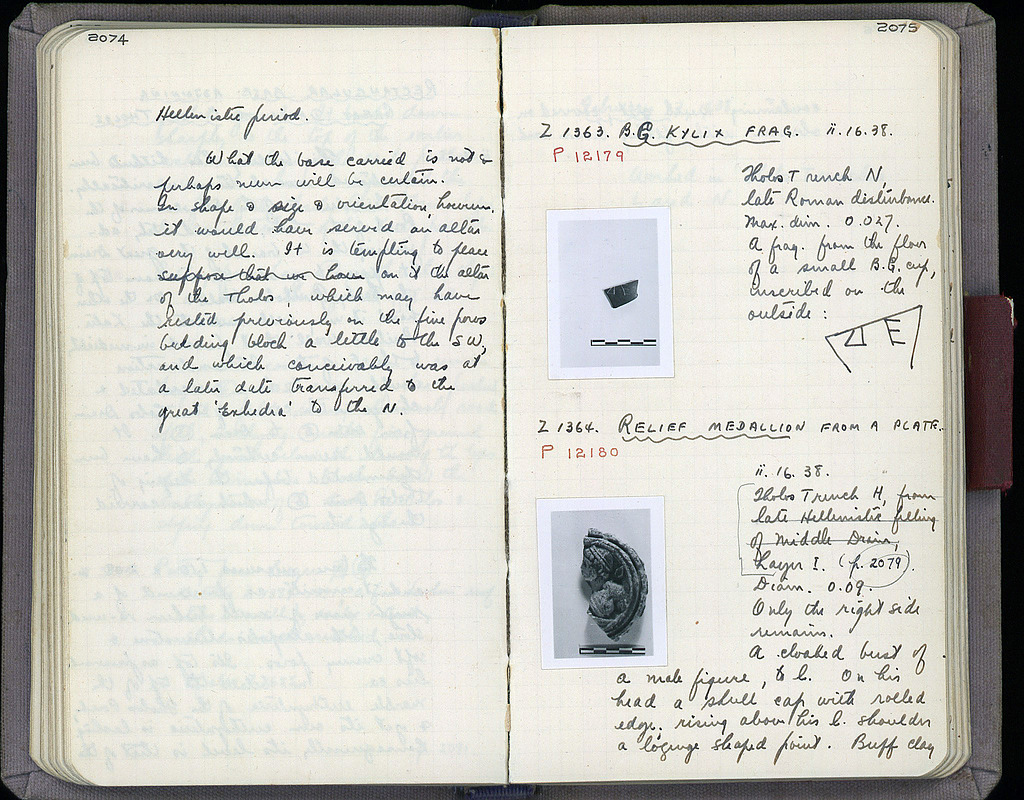 2074
Hellenistic period.
What the base carried is not &
perhaps never will be certain.
In shape & size & orientation, however,
it would have served an altar
very well. It is tempting to place
suppose that we have on it the altar
of the Tholos, which may have
rested previously on the fine poros
bedding block a little to the SW,
and which conceivably was at
a later date transferred to the
great 'Exhedra' to the N.
2075
Z 1363. B.G. KYLIX FRAG. ii.16.38.
P 12179
Tholos Trench N,
late Roman disturbance.
Max. dim. 0.027.
A frag. from the floor
of a small B.G. cup,
inscribed on the
outside:
Z 1364. RELIEF MEDALLION FROM A PLATE.
P 12180
ii. 16. 38.
Tholos Trench H, from
late Hellenistic filling
of Middle Drain,
Layer I. (p. 2079).
Diam. 0.09.
Only the right side
remains.
A cloaked bust of
a male figure, to l. On his
head a skull cap with rolled
edge; rising above his l. shoulder
a lozenge shaped point. Buff clay